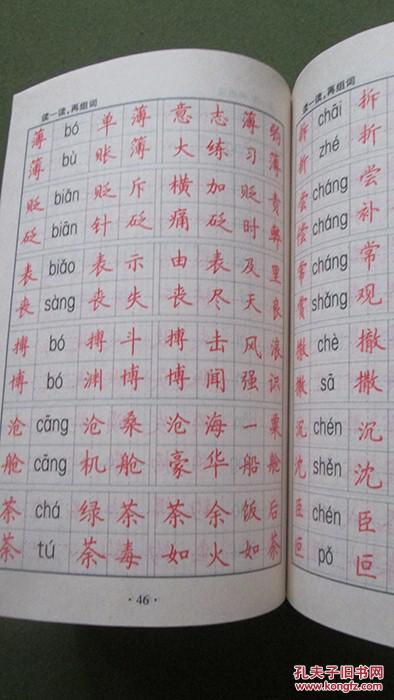 读一读,再组词
薄 bó 单薄 意志薄弱
簿 bù 账簿 大练习簿
贬 biǎn 贬斥 横加贬责
砭 biān 针砭 痛砭时弊
表 biǎo 表示 由表及里
丧 sàng 丧失 丧尽天良
搏 bó 搏斗 搏击风浪
博 bó 渊博 博闻强识
沧 cāng 沧桑 沧海一粟
舱 cāng 机舱 豪华船舱
茶 chá 绿茶 茶余饭后
荼 tú 荼毒 如火如荼
·46·
读一读,再组词
拆 chāi 拆
折 zhé 折
尝 cháng 尝
偿 cháng 补
常 cháng 常
赏 shǎng 观
撤 chè 撤
撒 sā 撒
沉 chén 沉
沈 shěn 沈
臣 chén 臣
叵 pǒ 叵
孔夫子旧书网